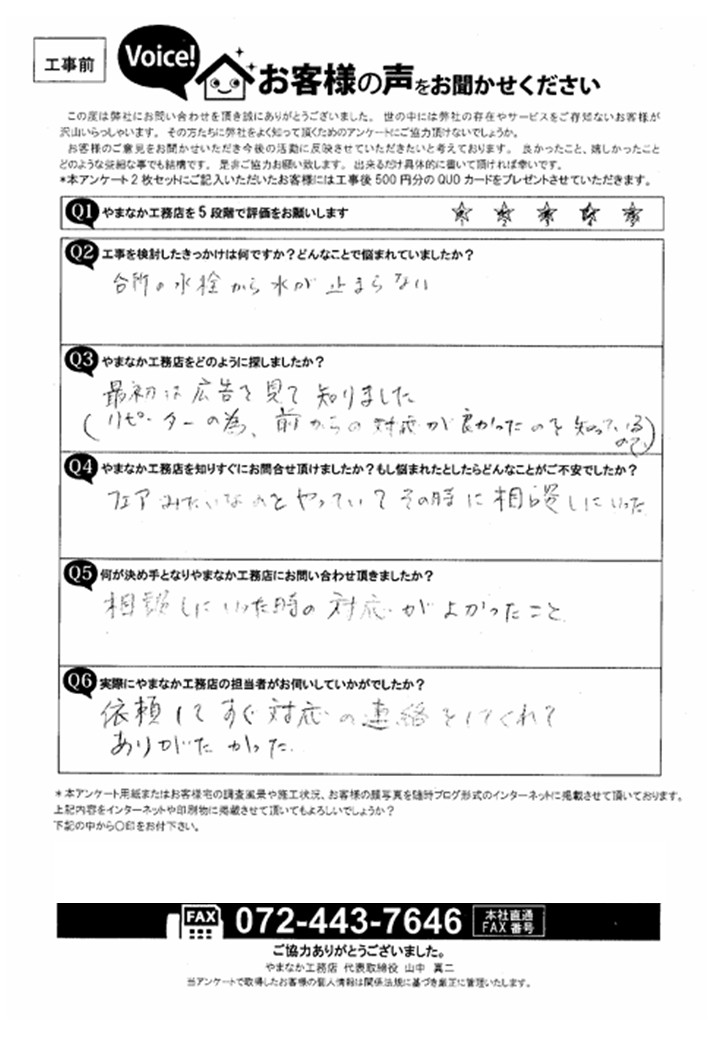 工事前
Voice!
お客様の声をお聞かせください
この度は弊社にお問い合わせを頂き誠にありがとうございました。 世の中には弊社の存在やサービスをご存知ないお客様が
沢山いらっしゃいます。 その方たちに弊社をよく知って頂くためのアンケートにご協力頂けないでしょうか。
お客様のご意見をお聞かせいただき今後の活動に反映させていただきたいと考えております。 良かったこと、嬉しかったこと
どのような些細な事でも結構です。 是非ご協力お願い致します。 出来るだけ具体的に書いて頂ければ幸いです。
*本アンケート2枚セットにご記入いただいたお客様には工事後500円分のQUOカードをプレゼントさせていただきます。
Q1 やまなか工務店を5段階で評価をお願いします ☆ ☆ ☆ ☆ ☆
Q2 工事を検討したきっかけは何ですか?どんなことで悩まれていましたか?
台所の水栓から水が止まらない
Q3 やまなか工務店をどのように探しましたか?
最初は広告を見て知りました
(リピーターの為、前からの対応が良かったのを知っている
ので)
Q4 やまなか工務店を知りすぐにお問合せ頂けましたか?もし悩まれたとしたらどんなことがご不安でしたか?
フェアみたいなのをやっていてその時に相談しにいった
Q5 何が決め手となりやまなか工務店にお問い合わせ頂きましたか?
相談しにいった時の対応がよかったこと
Q6 実際にやまなか工務店の担当者がお伺いしていかがでしたか?
依頼してすぐ対応の連絡をしてくれて
ありがたかった
*本アンケート用紙またはお客様宅の調査風景や施工状況、お客様の顔写真を随時ブログ形式のインターネットに掲載させて頂いております。
上記内容をインターネットや印刷物に掲載させて頂いてもよろしいでしょうか?
下記の中から〇印をお付下さい。
FAX 072-443-7646 本社直通
FAX番号
ご協力ありがとうございました。
やまなか工務店 代表取締役 山中 真二
当アンケートで取得したお客様の個人情報は関係法規に基づき厳正に管理いたします。